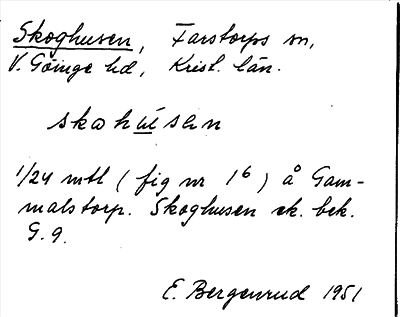 Skoghusen, Farstorps sn,
V. Göinge hd, Krist. län.
skɷhúsən
1/24 mtl (fig nr 1⁶) å Gam-
malstorp. Skoghusen ek. bek.
G. 9.
E. Bergenrud 1951